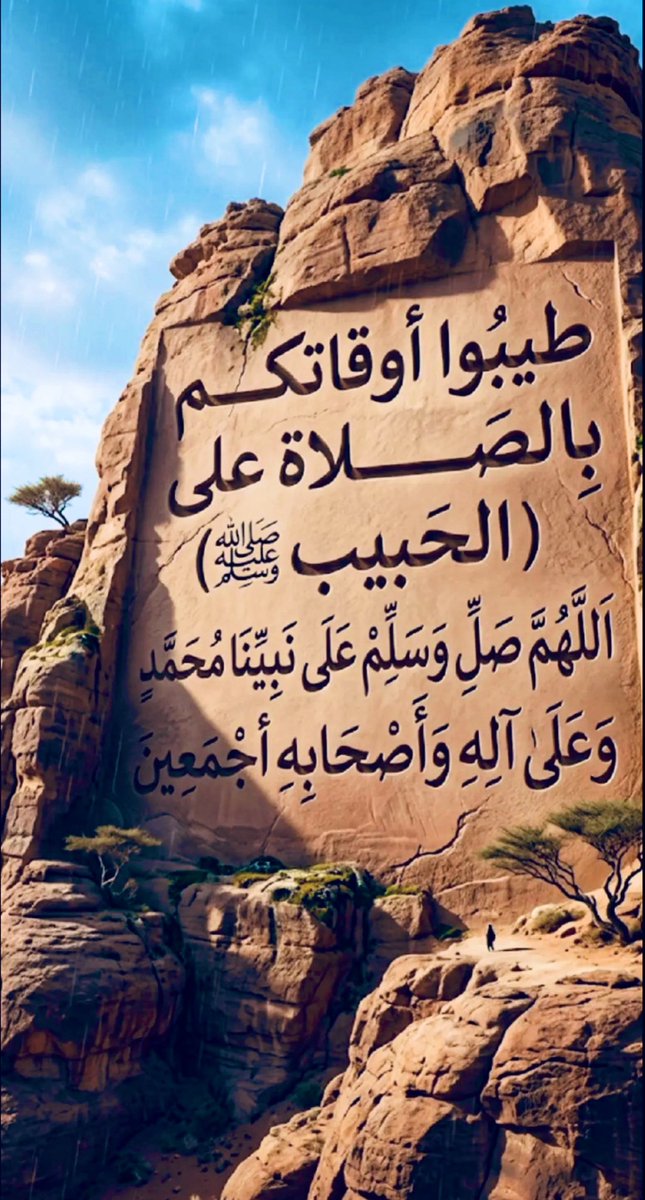 طيبُوا أوقاتكم
بِالصَلاة على
(الحَبيب ﷺ)
اَللَّهُمَّ صَلِّ وَسَلِّمْ عَلَى نَبِيِّنَا مُحَمَّدٍ
وَعَلَىٰ آلِهِ وَأَصْحَابِهِ أجْمَعِينَ